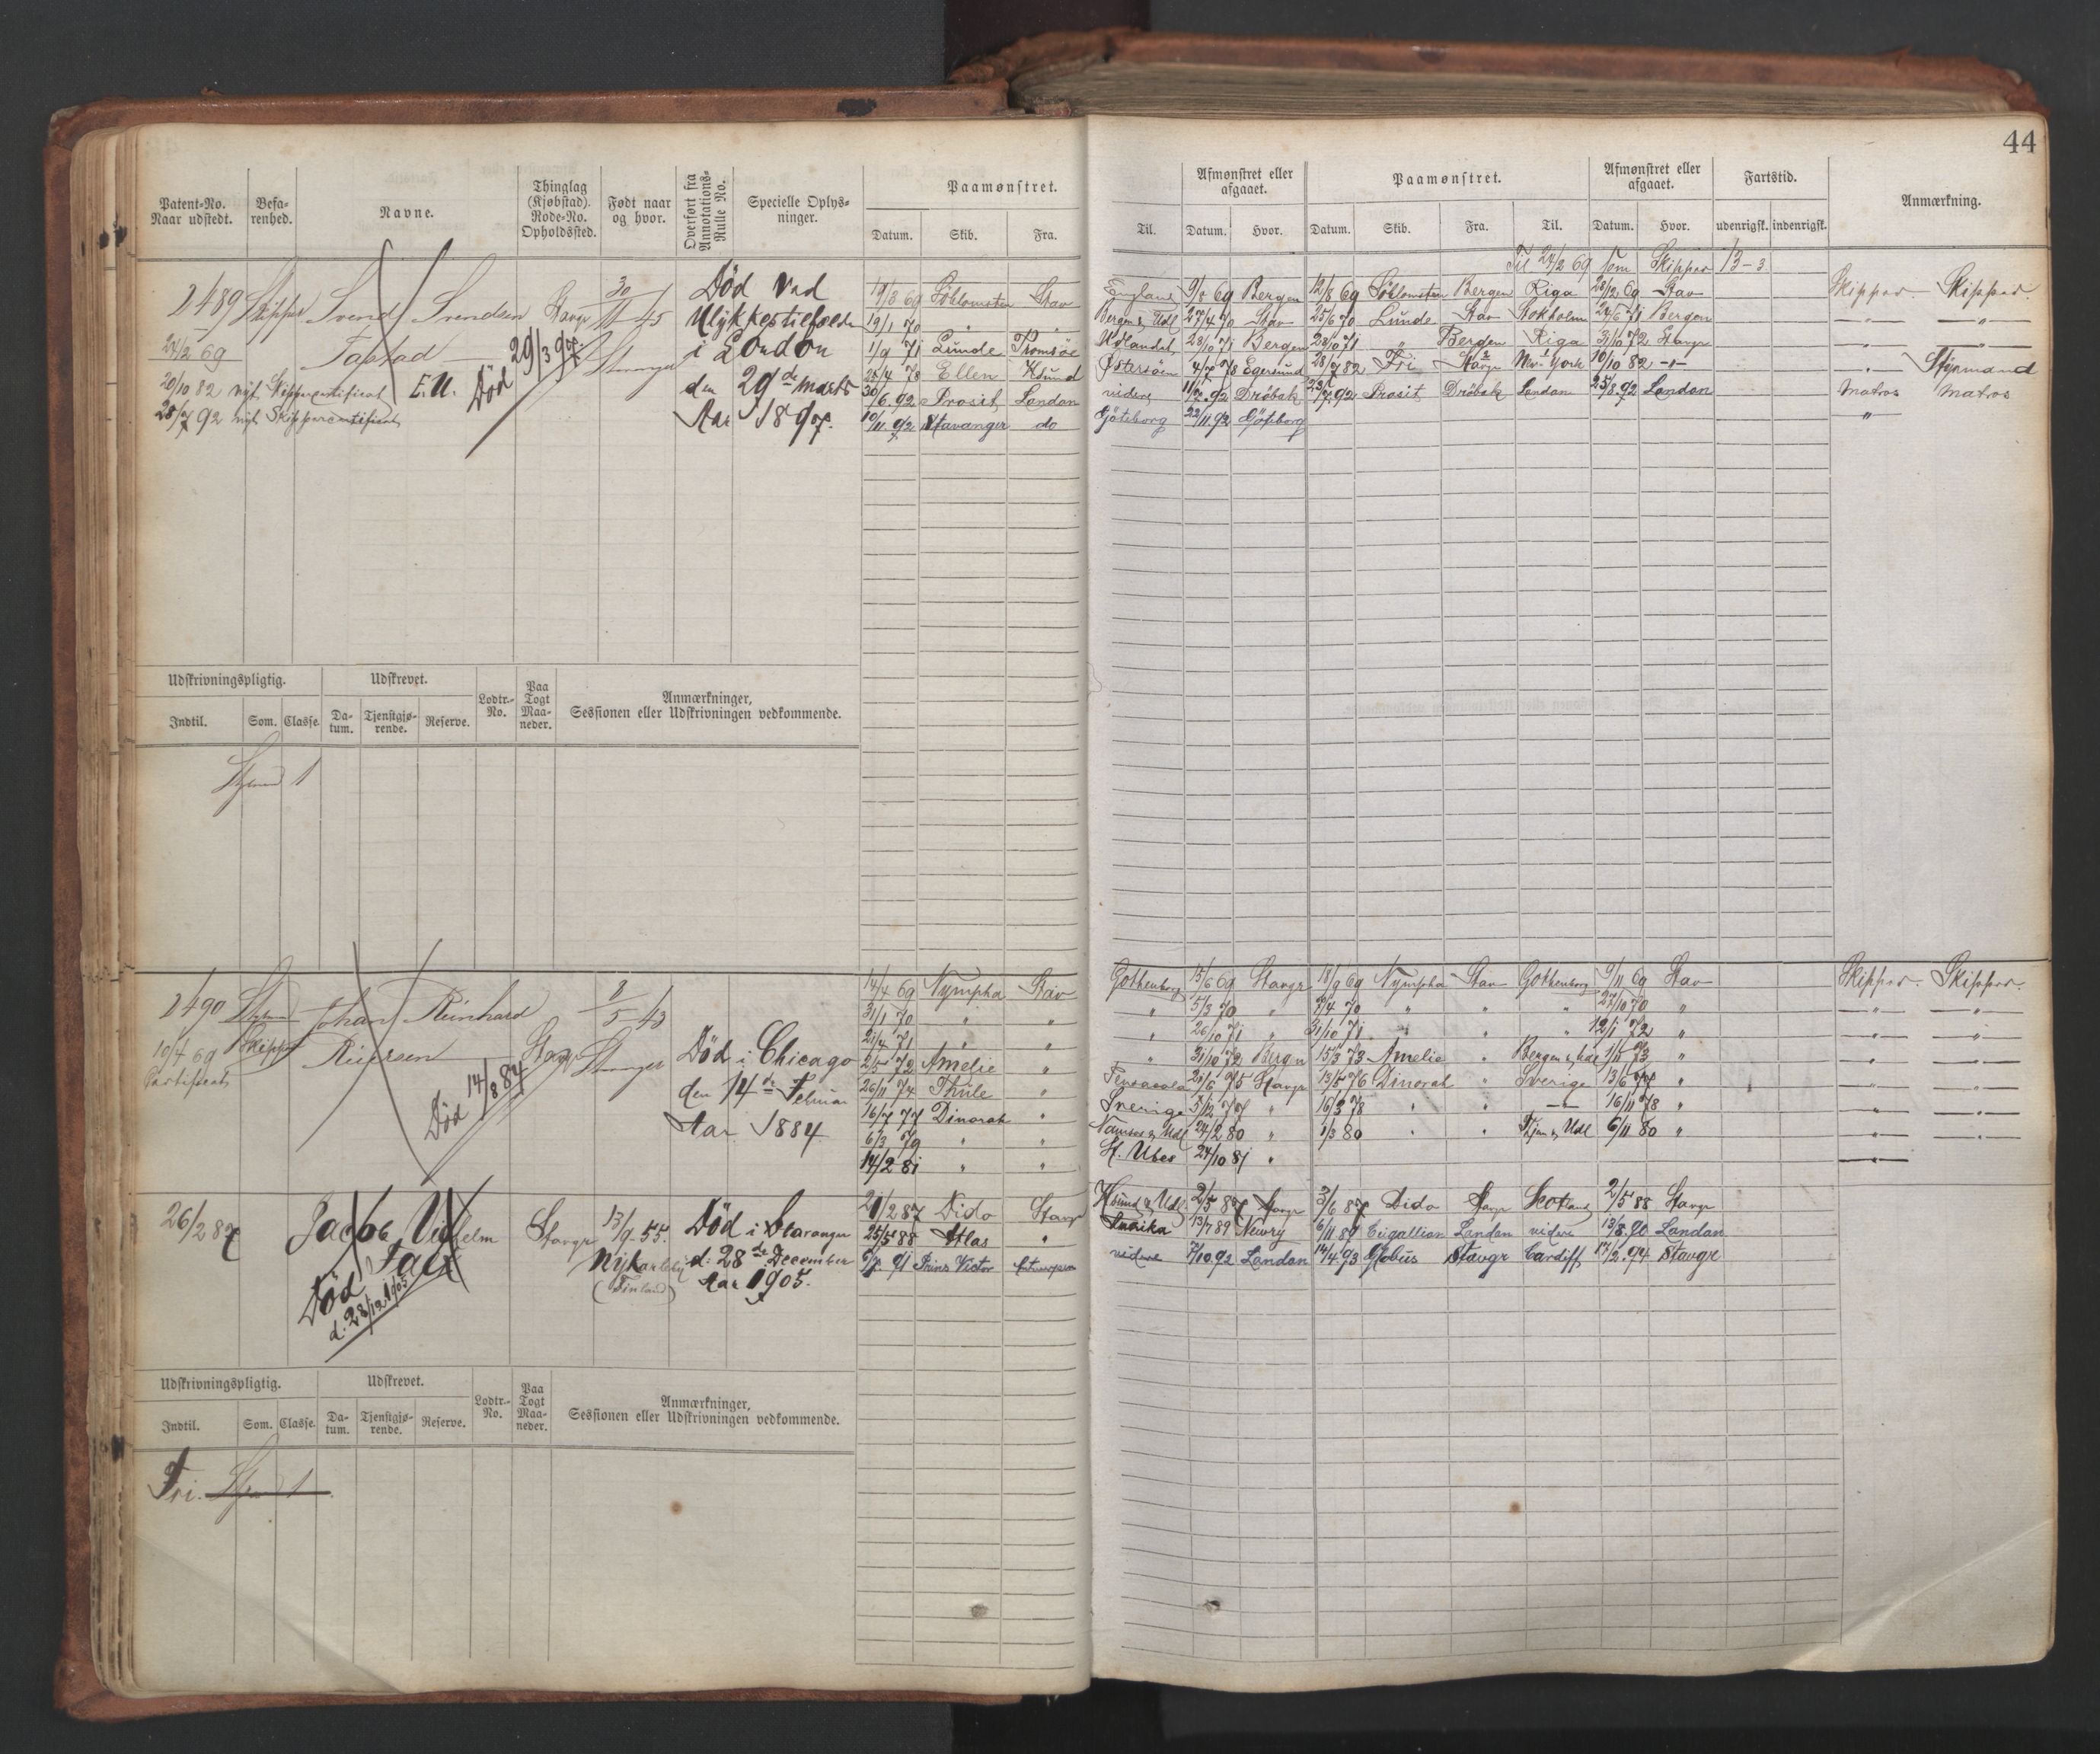 44
Patent-No. Naar udstedt. Befa-renhed. Navne. Thinglag (Kjøbstad). Rode-No. Opholdssted. Født naar og hvor. Overført fra Annotations-Rulle No. Specielle Oplys-ninger. Paamønstret. Afmønstret eller afgaaet. Paamønstret. Afmønstret eller afgaaet. Fartstid. Anmærkning.
Datum. Skib. Fra. Til. Datum. Hvor. Datum. Skib. Fra. Til. Datum. Hvor. udenrigsk. indenrigsk.
Til 24/2 69 som Skipper 13-3
1489 Skipper Svend Svendsen Stavgr 30/11 45 Død ved Stav England 9/8 69 Bergen 12/8 69 Bergen Riga Stav Skipper Skipper.
Ulykkestilfælde 19/1 70 " " Bergen & Udl 27/4 70 Stav 25/6 70 Lunde Stav Stokholm 24/6 71 Bergen
24/2 69 Tastad Død 29/3 97. Stavanger i London 1/9 71 Lunde Tromsøe Udlandet 28/10 71 Bergen 28/10 71 " Bergen Riga 31/10 72 Stavgr
20/10 82 nyt Skippercertificat E.U. den 29de marts Ellen Ksund Østersøen 4/7 78 Egersund 28/7 82 Fri Stavgr New York 10/10 82 Styrmand
30/6 92 Prosit London videre 11/7 92 Drøbak 23/7 92 Prosit Drøbak London 25/8 92 London Matros Matros
28/7 92 nyt Skippercertificat Aar 1897. 10/11 92 Stavanger do Göteborg 22/11 92 Göteborg "
Udskrivningspligtig. Udskrevet. Lodtr.-No. Paa Togt Maa-neder. Anmærkninger, Sessionen eller Udskrivningen vedkommende.
Indtil. Som. Classe. Da-tum. Tjenstgjø-rende. Reserve.
Styrmd 1
1490 Styrm Johan Reinhard 8/5 43 14/4 69 Nympha Stav Gothenborg 15/6 69 Stavgr 18/9 69 Nympha Stav Gothenborg 9/11 69 Stav Skipper Skipper.
31/1 70 " " " 5/3 70 " 7/4 70 " " " 27/10 70 "
10/4 69 Skipper Reiersen Stavgr Stavanger 21/4 71 " " " 26/10 71 " 31/10 71 " " " 12/1 72 "
Certificat Død 14/8 84 Død i Chicago 2/5 72 Amelie " " 31/10 72 Bergn 15/3 73 Amelie " 1/11 73 "
den 14de Februar 26/11 74 Thule " Pensacola 21/6 75 Stavgr 13/5 76 Dinorah " Sverige 13/6 77 "
Aar 1884 16/7 77 Dinorah " Sverige 3/12 77 " 16/3 78 " " 16/11 78 "
6/3 79 " " 24/2 80 " 1/3 80 " " 6/11 80 "
14/2 81 " " St. Ubes 24/10 81 "
26/2 87 Jacob Vilhelm Stavgr 13/9 55. Død i Stavanger 21/2 87 Dido Stavgr Ksund & Udl. 2/5 87 Stavgr 3/6 87 Dido Stavgr Skotland 2/5 88 Stavgr
25/5 88 Atlas " 13/7 89 Newry 6/11 89 London videre 13/8 90 London
Nykarleby d: 28de December Prins Victor videre 7/10 92 London 14/4 93 Globus Stavgr Cardiff 17/2 94 Stavgr
Død d. 28/12 1905 (Finland) Aar 1905.
Udskrivningspligtig. Udskrevet. Lodtr.-No. Paa Togt Maa-neder. Anmærkninger, Sessionen eller Udskrivningen vedkommende.
Indtil. Som. Classe. Da-tum. Tjenstgjø-rende. Reserve.
Fri. Styrm 1